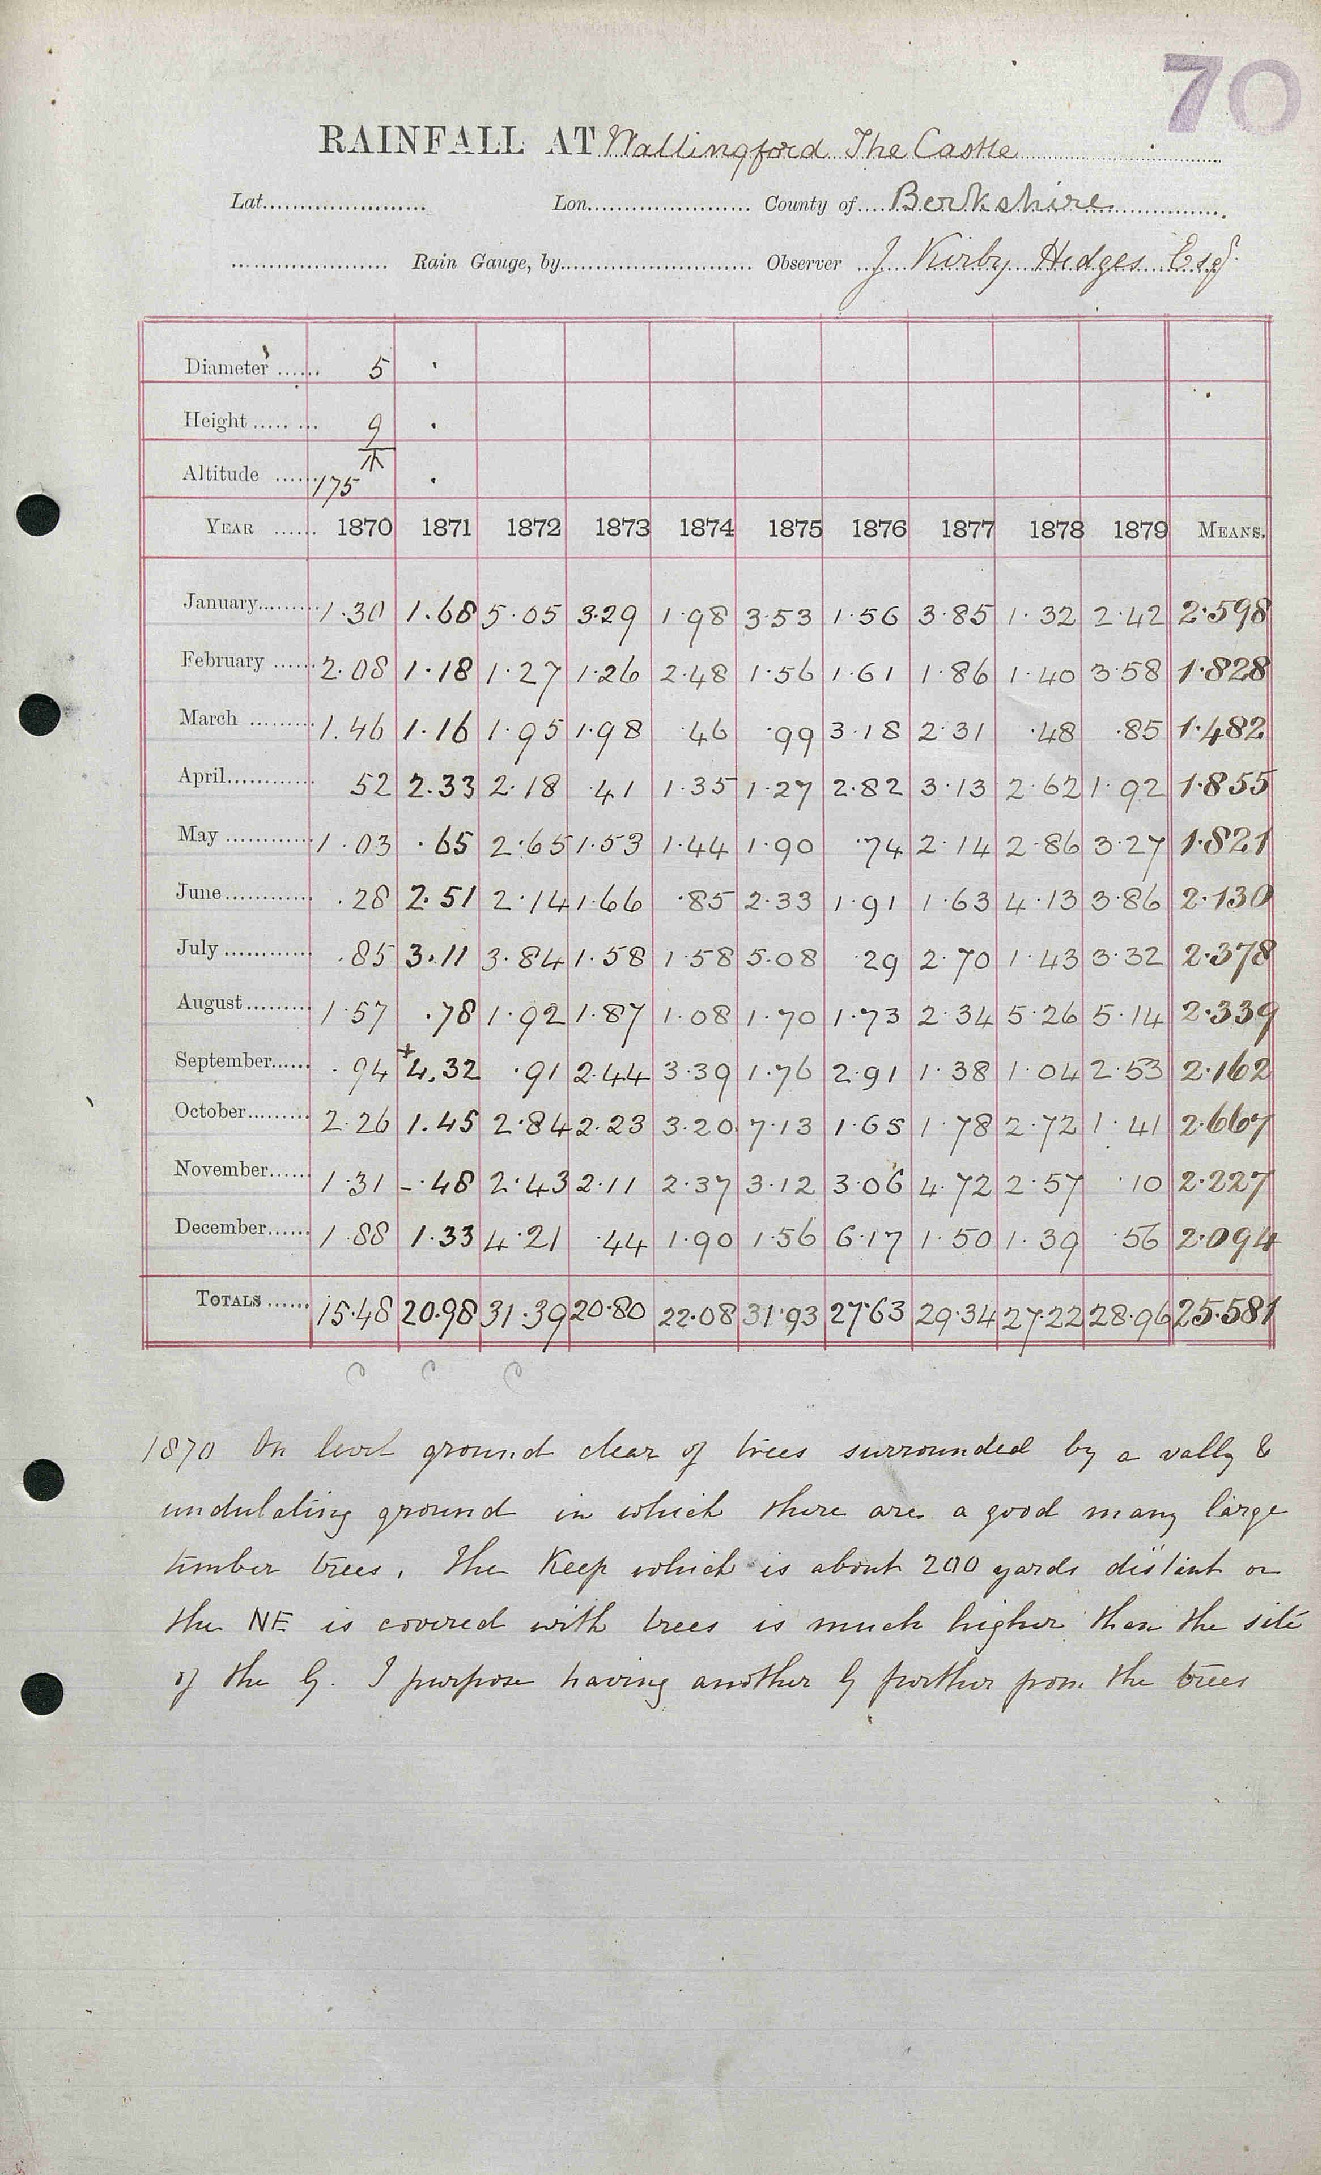 70
RAINFALL AT Wallingford The Castle
Lat. Lon. County of Berkshire
Rain Gauge, by Observer J Kirby Hedges Esqr
Diameter 5 .
Height 9 .
Altitude 175 .
YEAR 1870 1871 1872 1873 1874 1875 1876 1877 1878 1879 MEANS.
January 1.30 1.68 5.05 3.29 1.98 3.53 1.56 3.85 1.32 2.42 2.598
February 2.08 1.18 1.27 1.26 2.48 1.56 1.61 1.86 1.40 3.58 1.828
March 1.46 1.16 1.95 1.98 .46 .99 3.18 2.31 .48 .85 1.482
April 52 2.33 2.18 .41 1.35 1.27 2.82 3.13 2.62 1.92 1.855
May 1.03 .65 2.65 1.53 1.44 1.90 .74 2.14 2.86 3.27 1.821
June .28 2.51 2.14 1.66 .85 2.33 1.91 1.63 4.13 3.86 2.130
July .85 3.11 3.84 1.58 1.58 5.08 29 2.70 1.43 3.32 2.378
August 1.57 .78 1.92 1.87 1.08 1.70 1.73 2.34 5.26 5.14 2.339
September .94 +4.32 .91 2.44 3.39 1.76 2.91 1.38 1.04 2.53 2.162
October 2.26 1.45 2.84 2.23 3.20 7.13 1.65 1.78 2.72 1.41 2.667
November 1.31 -.48 2.43 2.11 2.37 3.12 3.06 4.72 2.57 .10 2.227
December 1.88 1.33 4.21 .44 1.90 1.56 6.17 1.50 1.39 .56 2.094
TOTALS 15.48 20.98 31.39 20.80 22.08 31.93 27.63 29.34 27.22 28.96 25.581
C C C
1870 On level ground clear of trees surrounded by a vally &
undulating ground in which there are a good many large
timber trees. The Keep which is about 200 yards distant on
the NE is covered with trees is much higher than the site
of the G. I purpose having another G further from the trees